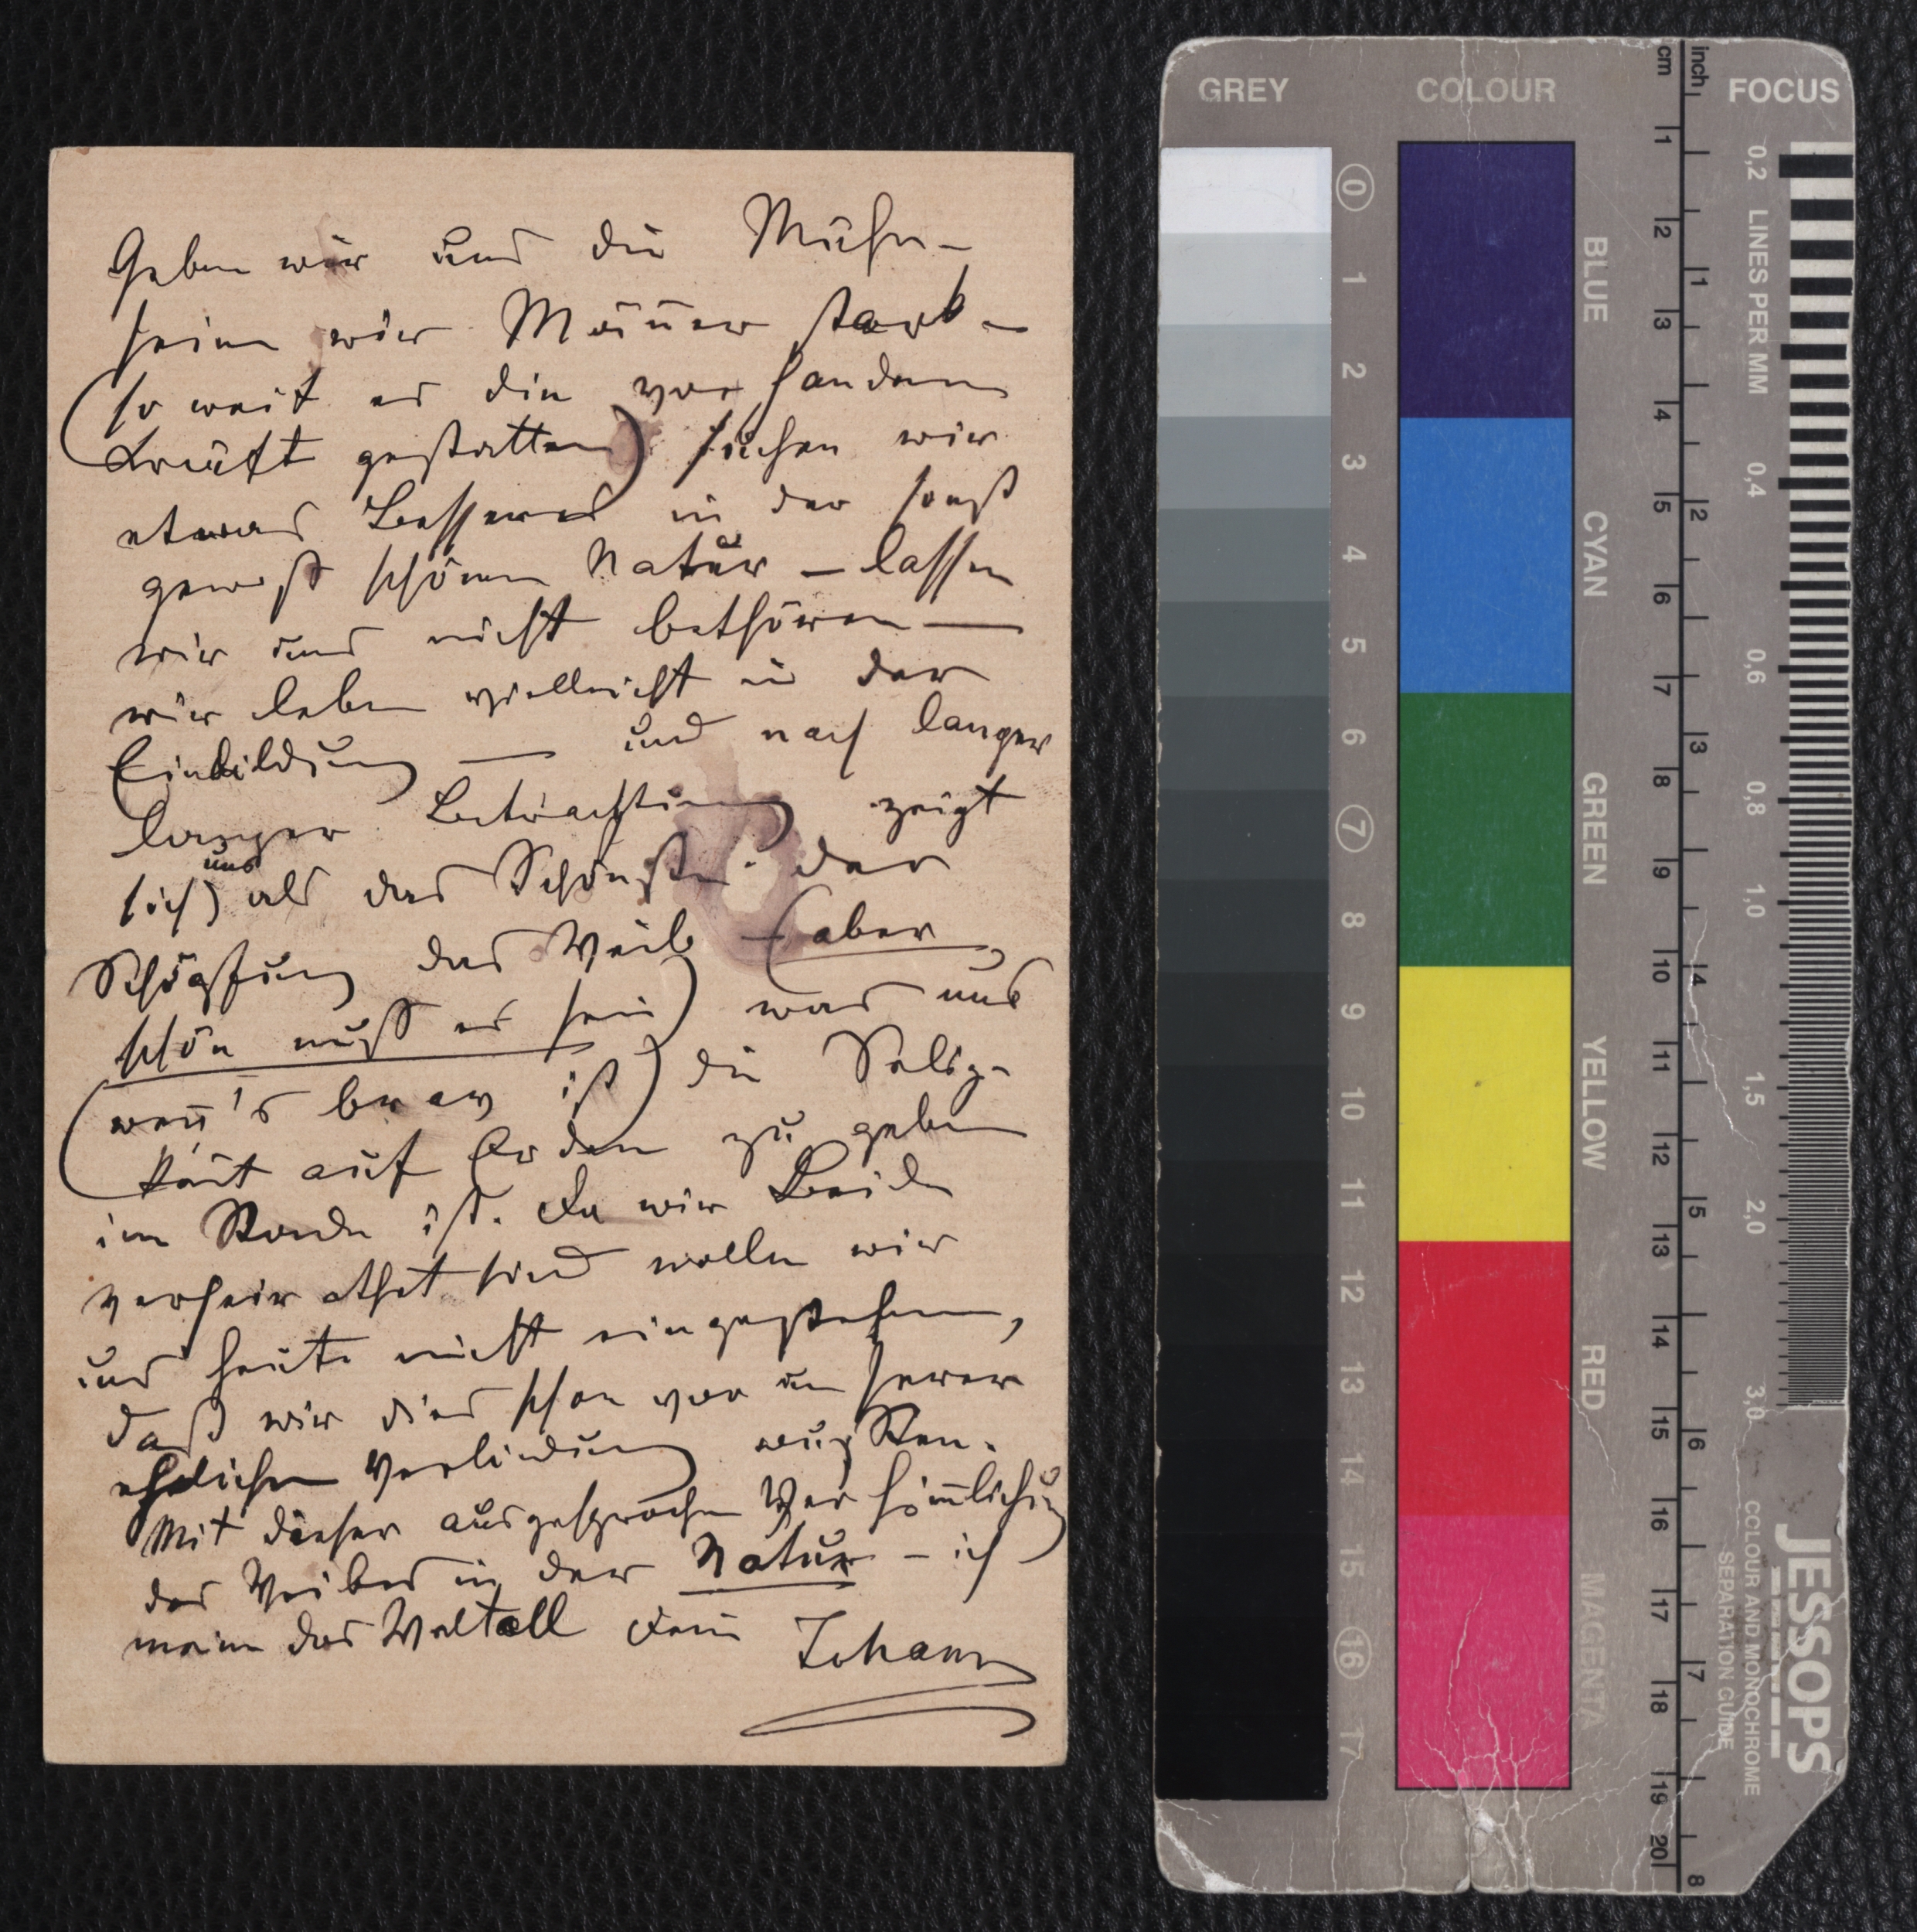 Geben wir uns die Mühe –
seien wir Männer stark –
(so weit es die vorhandene
Kräft gestatten) suchen wir
etwas Besseres in der sonst
gewiß schönen Natur – lassen
wir uns nicht bethören —
wir leben vielleicht in der
Einbildung — und nach langer
langer Betrachtung zeigt
sich uns als das Schönste der
Schöpfung das Weib – (aber
schön muß es sein) was uns
(wenn's brav ist) die Selig-
keit auf Erden zu geben
im Stande ist. Da wir Beide
verheirathet sind wollen wir
uns heute nicht eingestehen,
daß wir dies schon vor unserer
ehelichen Verbindung wußten.
Mit dieser ausgesprochen Verhimmlichung
des Weibes in der Natur – ich
meine das Weltall Dein Johann
GREY
COLOUR
FOCUS
cm
inch
0 1 2 3 4 5 6 7 8 9 10 11 12 13 14 15 16 17
BLUE
CYAN
GREEN
YELLOW
RED
MAGENTA
1 2 3 4 5 6 7 8 9 10 11 12 13 14 15 16 17 18 19 20
1 2 3 4 5 6 7 8
0,2 LINES PER MM 0,4 0,6 0,8 1,0 1,5 2,0 3,0
JESSOPS
COLOUR AND MONOCHROME
SEPARATION GUIDE